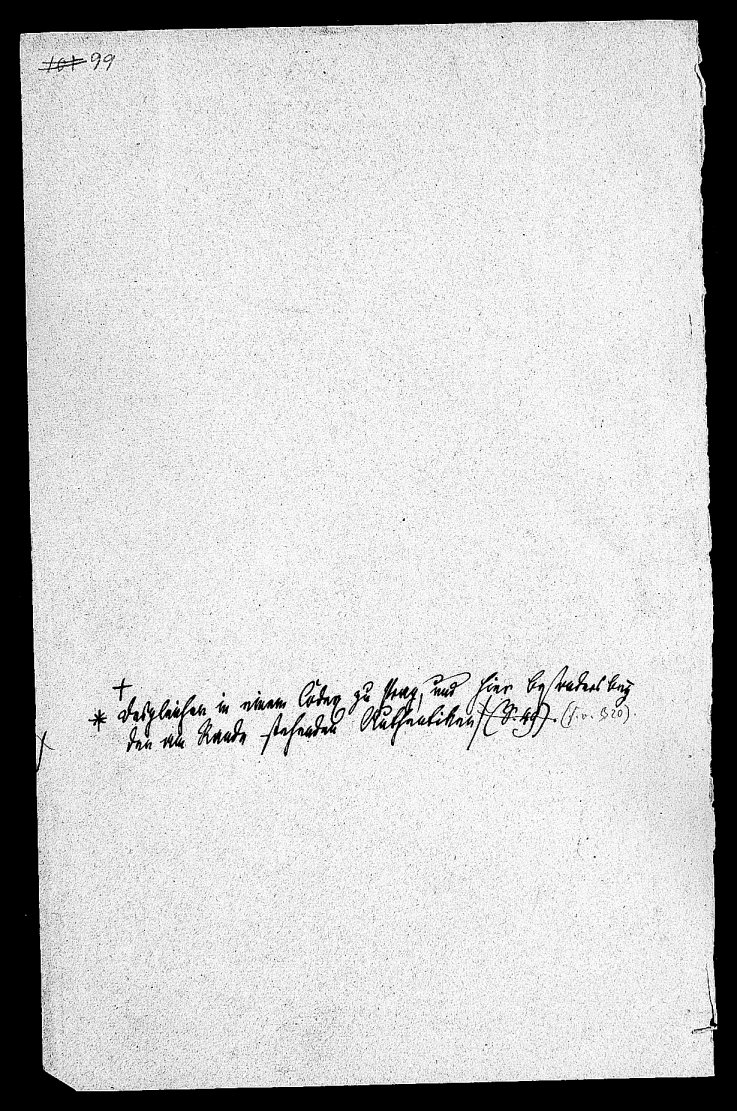 101 99
+
* desgleichen in einem Codex zu Prag, und hier besonders bey
den am Rande stehenden Authentiken (S. 49). (s. o. S 20).